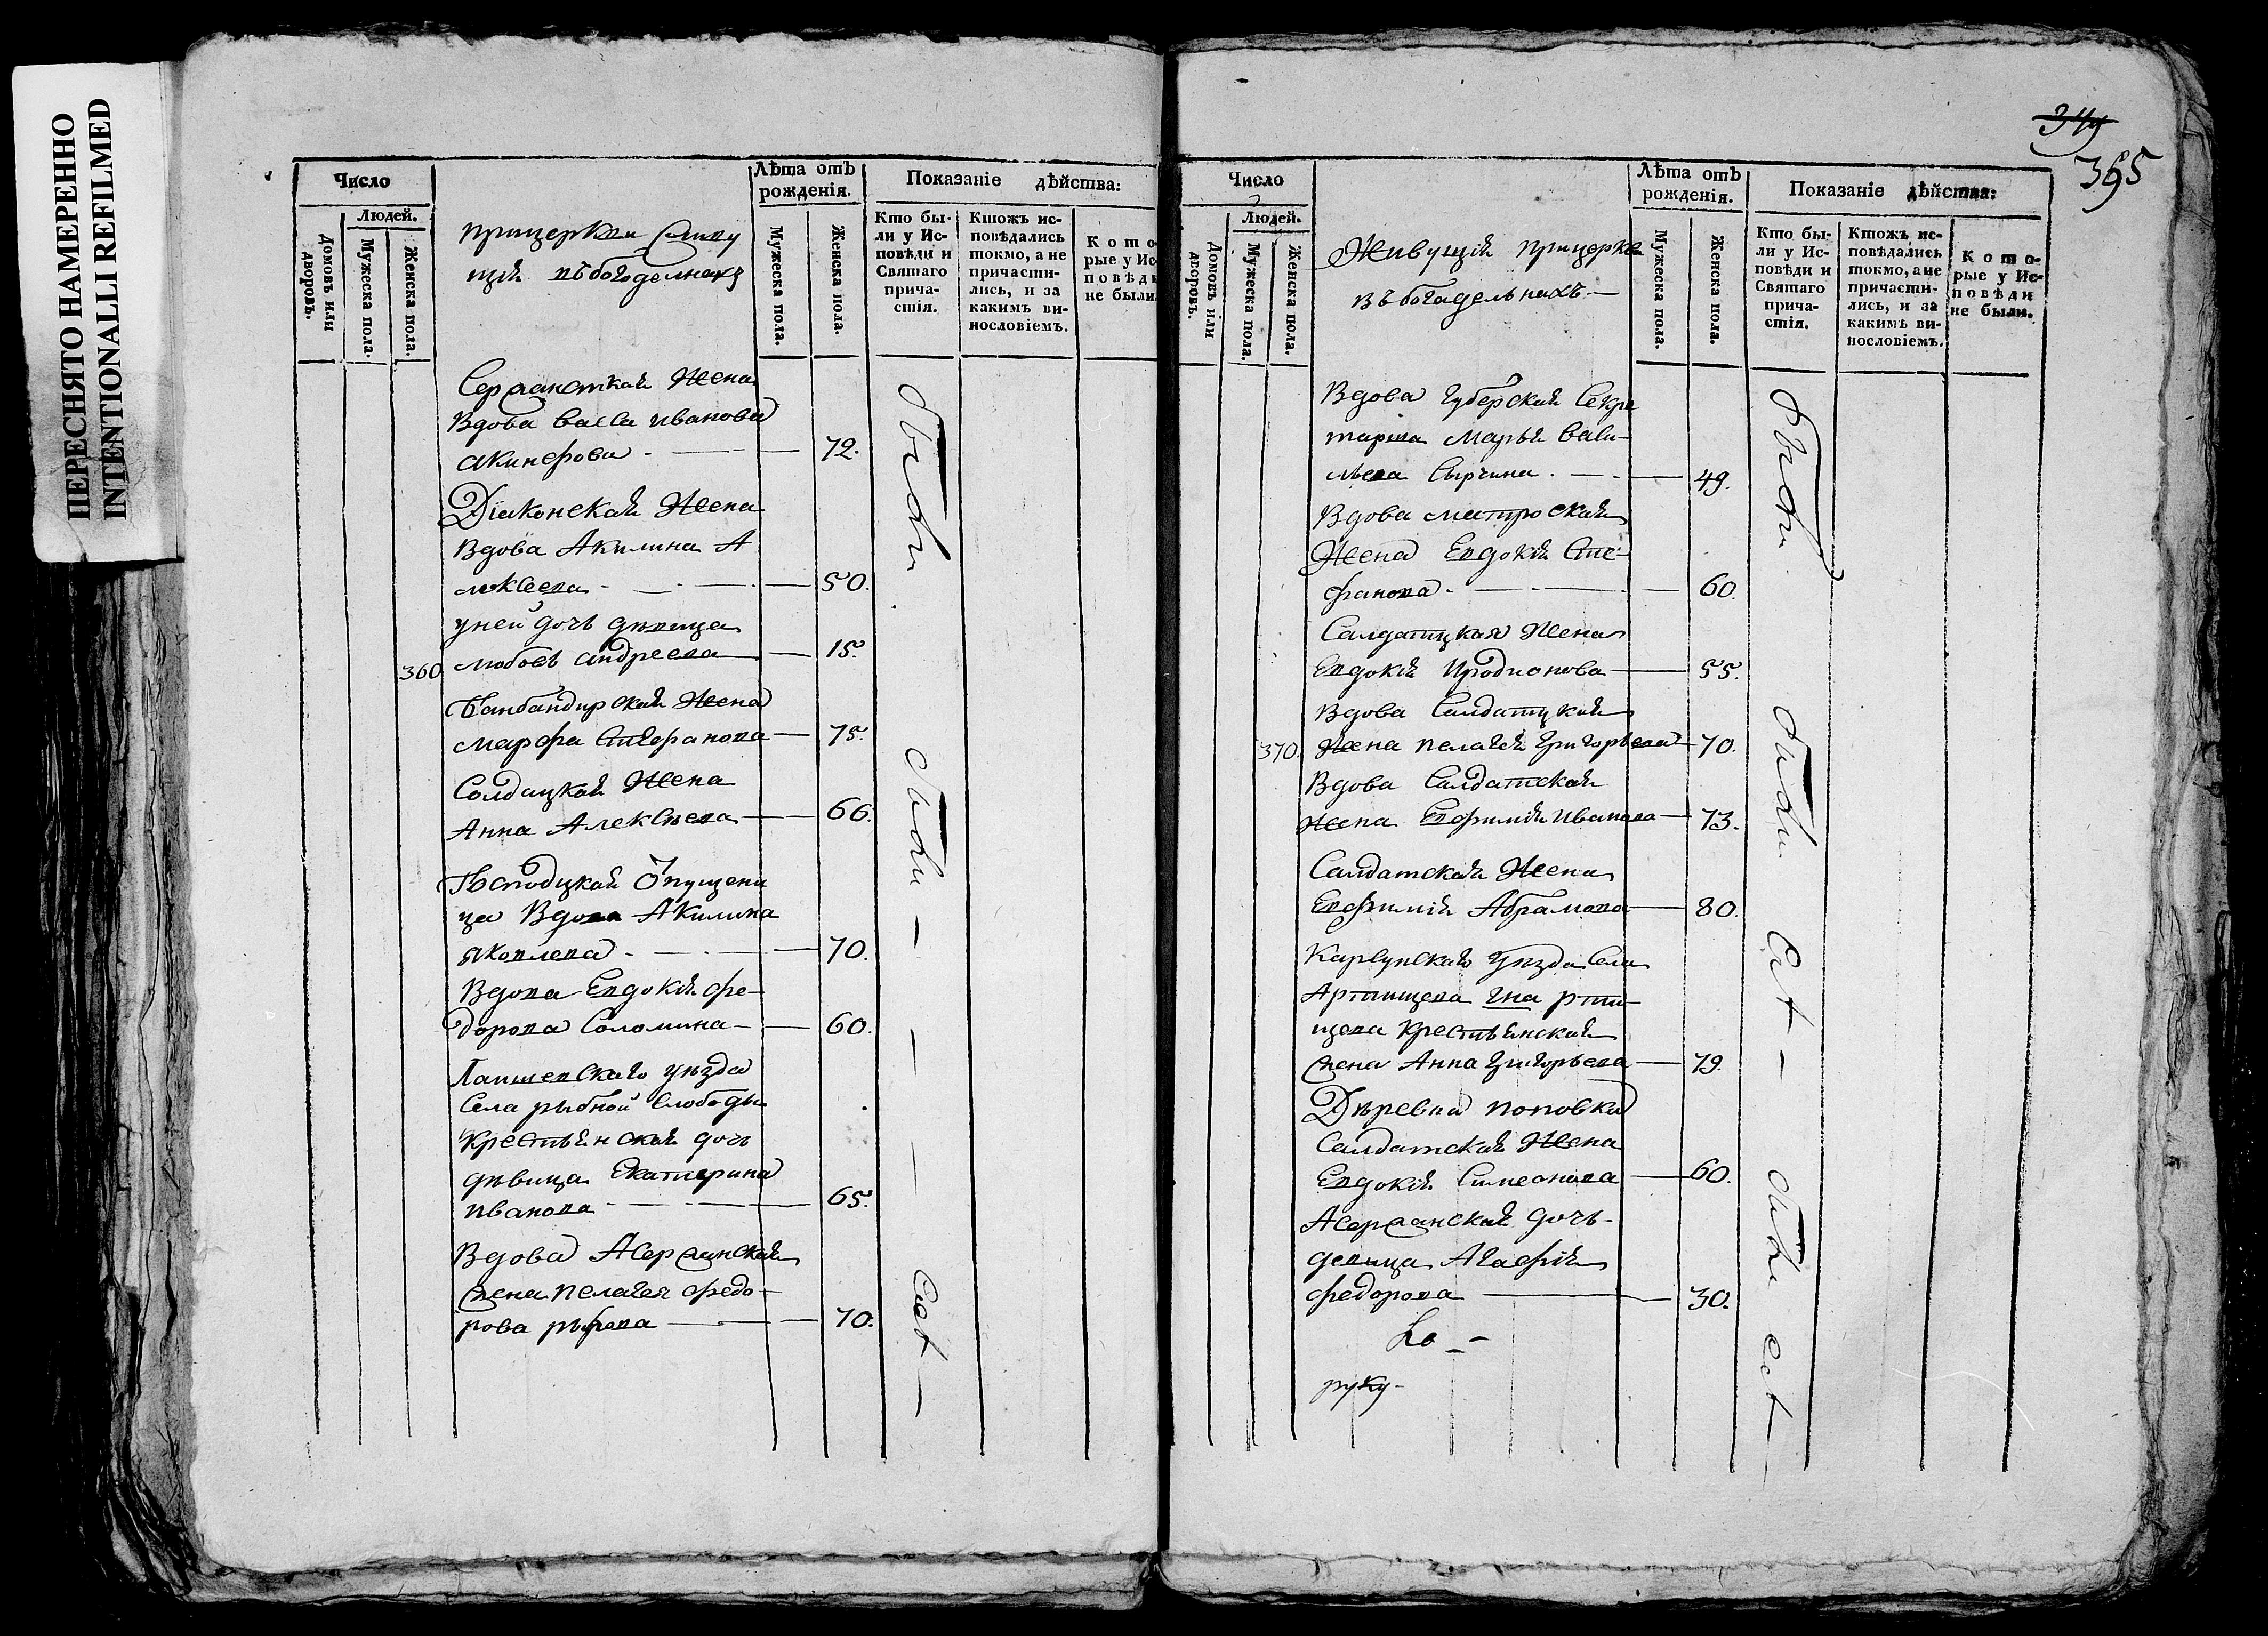 ПЕРЕСНЯТО НАМЕРЕННО
INTENTIONALLI REFILMED
Число
Людей.
Домовъ или дворовъ.
Мужеска пола.
Женска пола.
прицеркви живу
щія въ богоделнахъ
Лѣта отъ рожденія.
Мужеска пола.
Женска пола.
Показаніе дѣйства:
Кто бы-
ли у Ис-
повѣди и
Святаго
прича-
стія.
Ктожъ ис-
повѣдались
токмо, а не
причасти-
лись, и за
какимъ ви-
нословіемъ.
Кото
рые у Ис
повѣд
не были.
Сержанская Жена
Вдова Васса иванова
акинфова - 72.
Діаконская Жена
Вдова Акилина А
лексеева - 50.
уней дочь дѣвица
360 любовь андреева 15.
Банбандирская Жена
марфа Стефанова 75.
Солдацкая Жена
Анна Алексѣева 66.
Господцкая Опущени
ца Вдова Акилина
яковлева - 70.
Вдова Евдокія фе-
дорова Соломина - 60.
Лаишевскаго уѣзда
Села рыбной слободы
Крестьянская дочь
дѣвица Екатерина
иванова 65.
Вдова Асержанская
жена пелагея федо-
рова 70.
были
были
349
365
Число
Людей.
Домовъ или дворовъ.
Мужеска пола.
Женска пола.
Живущія прицеркви
въ богадельнахъ -
Лѣта отъ рожденія.
Мужеска пола.
Женска пола.
Показаніе дѣйства:
Кто бы-
ли у Ис-
повѣди и
Святаго
прича-
стія.
Ктожъ ис-
повѣдались
токмо, а не
причасти-
лись, и за
какимъ ви-
нословіемъ.
Кото-
рые у Ис-
повѣди
не были.
Вдова Губерская Секре
тарша Марья Васи-
льева Сырчина. 49.
Вдова матроская
Жена Евдокія Сте-
фанова - 60.
Салдатцкая Жена
Евдокія Иродионова 55.
Вдова Салдатцкая
370. Жена пелагея Григорьева 70.
Вдова Салдатская
Жена Евфимія иванова 73.
Салдатская Жена
Евфимія Абрамова 80.
Карсунскаго уѣзда Села
Артищева гна рти-
щева Крестьянская
жена Анна Григорьева 79.
Дѣревна поповка
Салдатская Жена
Евдокія Симеонова 60.
Асержанская дочь-
девица Агафія
федорова 30.
руку-
были
были